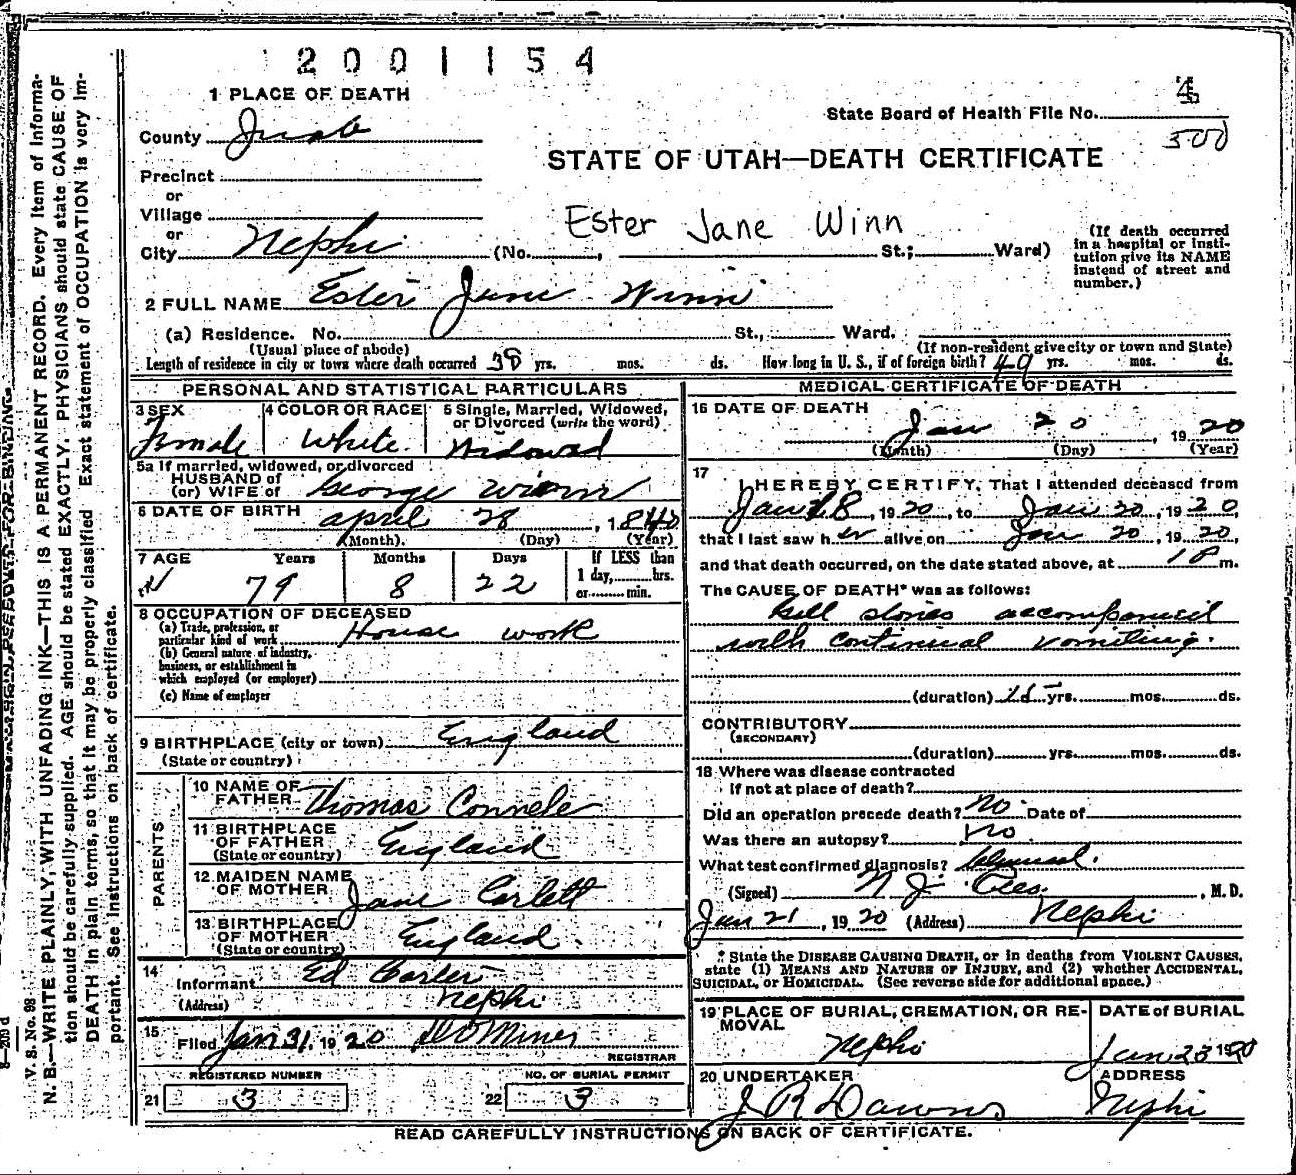 2001154
1 PLACE OF DEATH
County Juab
State Board of Health File No. 4
300
STATE OF UTAH—DEATH CERTIFICATE
Precinct
or
Village
or
City Nephi (No. , St.; Ward)
Ester Jane Winn
(If death occurred in a hospital or institution give its NAME instead of street and number.)
2 FULL NAME Ester Jane Winn
(a) Residence. No. St., Ward.
(Usual place of abode) (If non-resident give city or town and State)
Length of residence in city or town where death occurred 38 yrs. mos. ds. How long in U. S., if of foreign birth? 49 yrs. mos. ds.
PERSONAL AND STATISTICAL PARTICULARS
3 SEX Female
4 COLOR OR RACE White
5 Single, Married, Widowed, or Divorced (write the word) Widowed
5a If married, widowed, or divorced
HUSBAND of
(or) WIFE of George Winn
6 DATE OF BIRTH April 28, 1840
(Month) (Day) (Year)
7 AGE Years 79 Months 8 Days 22
If LESS than 1 day, hrs. or min.
8 OCCUPATION OF DECEASED
(a) Trade, profession, or particular kind of work House work
(b) General nature of industry, business, or establishment in which employed (or employer)
(c) Name of employer
9 BIRTHPLACE (city or town) England
(State or country)
PARENTS
10 NAME OF FATHER Thomas
11 BIRTHPLACE OF FATHER (State or country) England
12 MAIDEN NAME OF MOTHER Jane
13 BIRTHPLACE OF MOTHER (State or country) England.
14 Informant Ed
(Address) Nephi
15 Filed Jan 31, 1920 Miner
REGISTRAR
REGISTERED NUMBER
21 3
NO. OF BURIAL PERMIT
22 3
MEDICAL CERTIFICATE OF DEATH
16 DATE OF DEATH
Jan 20, 1920
(Month) (Day) (Year)
17 I HEREBY CERTIFY, That I attended deceased from
Jan 18, 1920, to Jan 20, 1920,
that I last saw her alive on Jan 20, 1920,
and that death occurred, on the date stated above, at 1 P m.
The CAUSE OF DEATH* was as follows:
Gall stones accompanied
with continual vomiting.
(duration) 15 yrs. mos. ds.
CONTRIBUTORY
(SECONDARY)
(duration) yrs. mos. ds.
18 Where was disease contracted
If not at place of death?
Did an operation precede death? No Date of
Was there an autopsy? No
What test confirmed diagnosis?
(Signed) J Rees, M. D.
Jan 21, 1920 (Address) Nephi
* State the DISEASE CAUSING DEATH, or in deaths from VIOLENT CAUSES, state (1) MEANS AND NATURE OF INJURY, and (2) whether ACCIDENTAL, SUICIDAL, or HOMICIDAL. (See reverse side for additional space.)
19 PLACE OF BURIAL, CREMATION, OR REMOVAL
Nephi
DATE of BURIAL
Jan 23 1920
20 UNDERTAKER
J R
ADDRESS
Nephi
READ CAREFULLY INSTRUCTIONS ON BACK OF CERTIFICATE.
V. S. No. 98
N. B.—WRITE PLAINLY, WITH UNFADING INK—THIS IS A PERMANENT RECORD. Every Item of Informa-
tion should be carefully supplied. AGE should be stated EXACTLY. PHYSICIANS should state CAUSE OF
DEATH in plain terms, so that it may be properly classified. Exact statement of OCCUPATION is very Im-
portant. See Instructions on back of certificate.